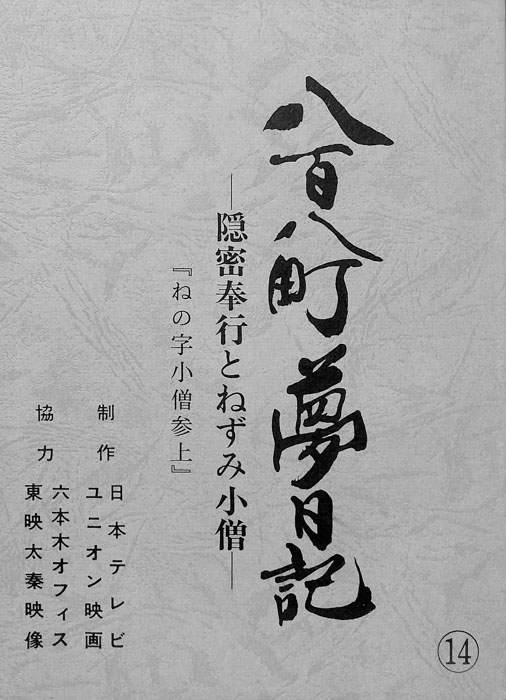 八百八町夢日記
―隠密奉行とねずみ小僧―
『ねの字小僧参上』
制作
日本テレビ
ユニオン映画
協力
六本木オフィス
東映太秦映像
14